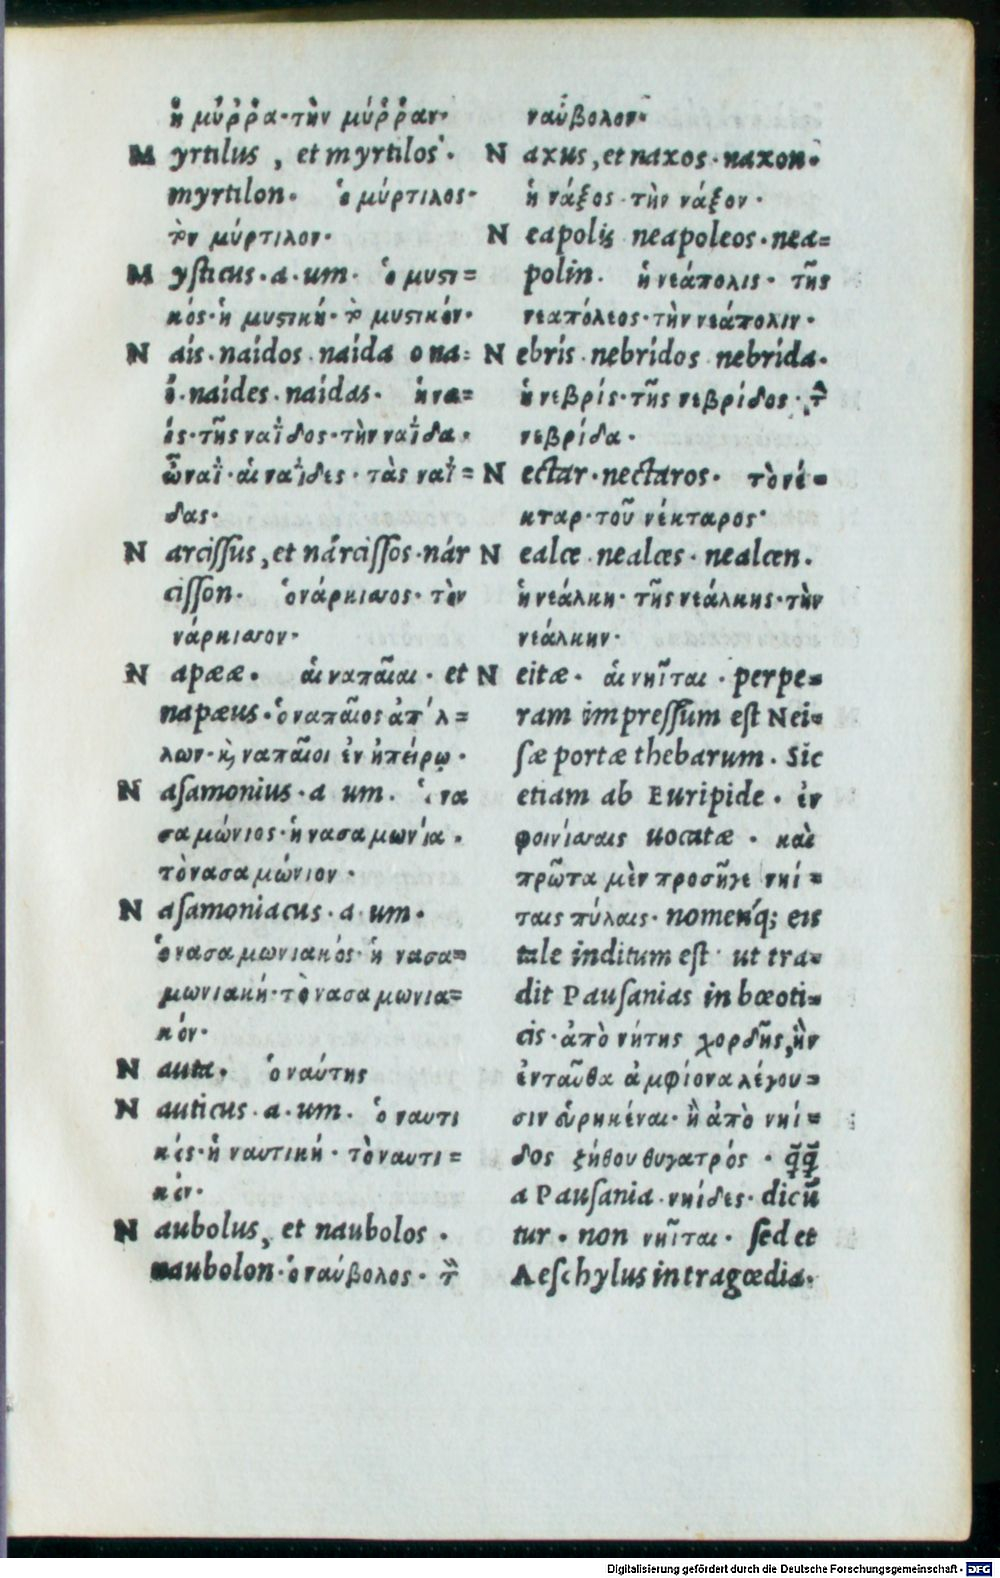 ἡ μύῤῥα·τὴν μύῤῥαν·
M yrtilus , et myrtilos ·
myrtilon· ὁ μύρτιλος·
τὸν μύρτιλον·
M ysticus·a·um· ὁ μυστι=
κός·ἡ μυστικὴ·τὸ μυστικόν·
N ais·naidos·naida o na=
i·naides·naidas· ἡ να=
ὶς·τῆς ναΐδος·τὴν ναΐδα·
ὦ ναΐ·αἱ ναΐδες·τὰς ναΐ=
δας·
N arcissus, et nárcissos·nár
cisson· ὁ νάρκισσος·τὸν
νάρκισσον·
N apææ· αἱ ναπαῖαι· et
napæus·ὁ ναπαῖος ἀπ'λ=
λων·κὴ ναπαῖοι ἐν ἠπείρῳ·
N asamonius·a um· ὁ να
σαμώνιος·ἡ νασαμωνία·
τὸ νασαμώνιον·
N asamoniacus·a·um·
ὁ νασαμωνιακός·ἡ νασα=
μωνιακή·τὸ νασαμωνια=
κόν·
N auta· ὁ ναύτης
N auticus·a·um· ὁ ναυτι
κός·ἡ ναυτική·τὸ ναυτι=
κόν·
N aubolus, et naubolos ·
naubolon·ὁ ναύβολος· τ
ναύβολον·
N axus, et naxos·naxon·
ἡ νάξος·τὴν νάξον·
N eapolis neapoleos·nea=
polin· ἡ νεάπολις· τῆς
νεαπόλεος·τὴν νεάπολιν·
N ebris·nebridos nebrida·
ἡ νεβρίς·τῆς νεβρίδος·τ
νεβρίδα·
N ectar·nectaros· τὸ νέ=
κταρ·τοῦ νέκταρος·
N ealce·nealces·nealcen·
ἡ νεάλκη·τῆς νεάλκης·τὴν
νεάλκην·
N eitæ· αἱ νηῖται · perpe=
ram impressum est Nei=
sæ portæ thebarum·Sic
etiam ab Euripide · ἐν
φοινίσσαις uocatæ · καὶ
πρῶτα μὲν προσῆγε νηί=
ταις πύλαις· nomenq; eis
tale inditum est· ut tra=
dit Pausanias in bœoti=
cis·ἀπὸ νήτης χορδῆς, ἣν
ἐνταῦθα ἀμφίονα λέγου=
σιν εὑρηκέναι·ἢ ἀπὸ νηί=
δος ζήθου θυγατρός · q̃q̃
a Pausania·νηίδες· dicũ
tur· non νηῖται· sed et
Aeschylus in tragœdia·
Digitalisierung gefördert durch die Deutsche Forschungsgemeinschaft - DFG